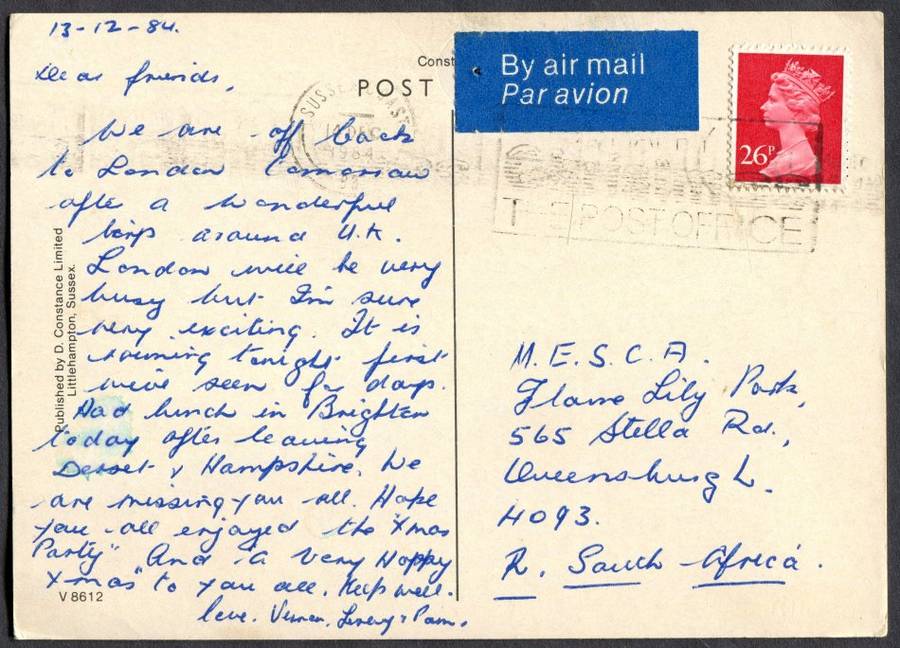 13-12-84.
Dear friends,
We are off back
to London tomorrow
after a wonderful
trip around U.K.
London will be very
busy but I'm sure
very exciting. It is
raining tonight first
we've seen for days.
Had lunch in Brighton
today after leaving
Dorset & Hampshire. We
are missing you all. Hope
you all enjoyed the "Xmas
Party" And "a Very Happy
Xmas" to you all. Keep well.
love. Vernon, & Pam.
V 8612
Published by D. Constance Limited
Littlehampton, Sussex.
Const
POST
By air mail
Par avion
26P
SUSSEX COAST
DEC
1984
THE POST OFFICE
M.E.S.C.A.
Flame Lily Park,
565 Stella Rd.,
Queensburgh.
4093.
R. South Africa.